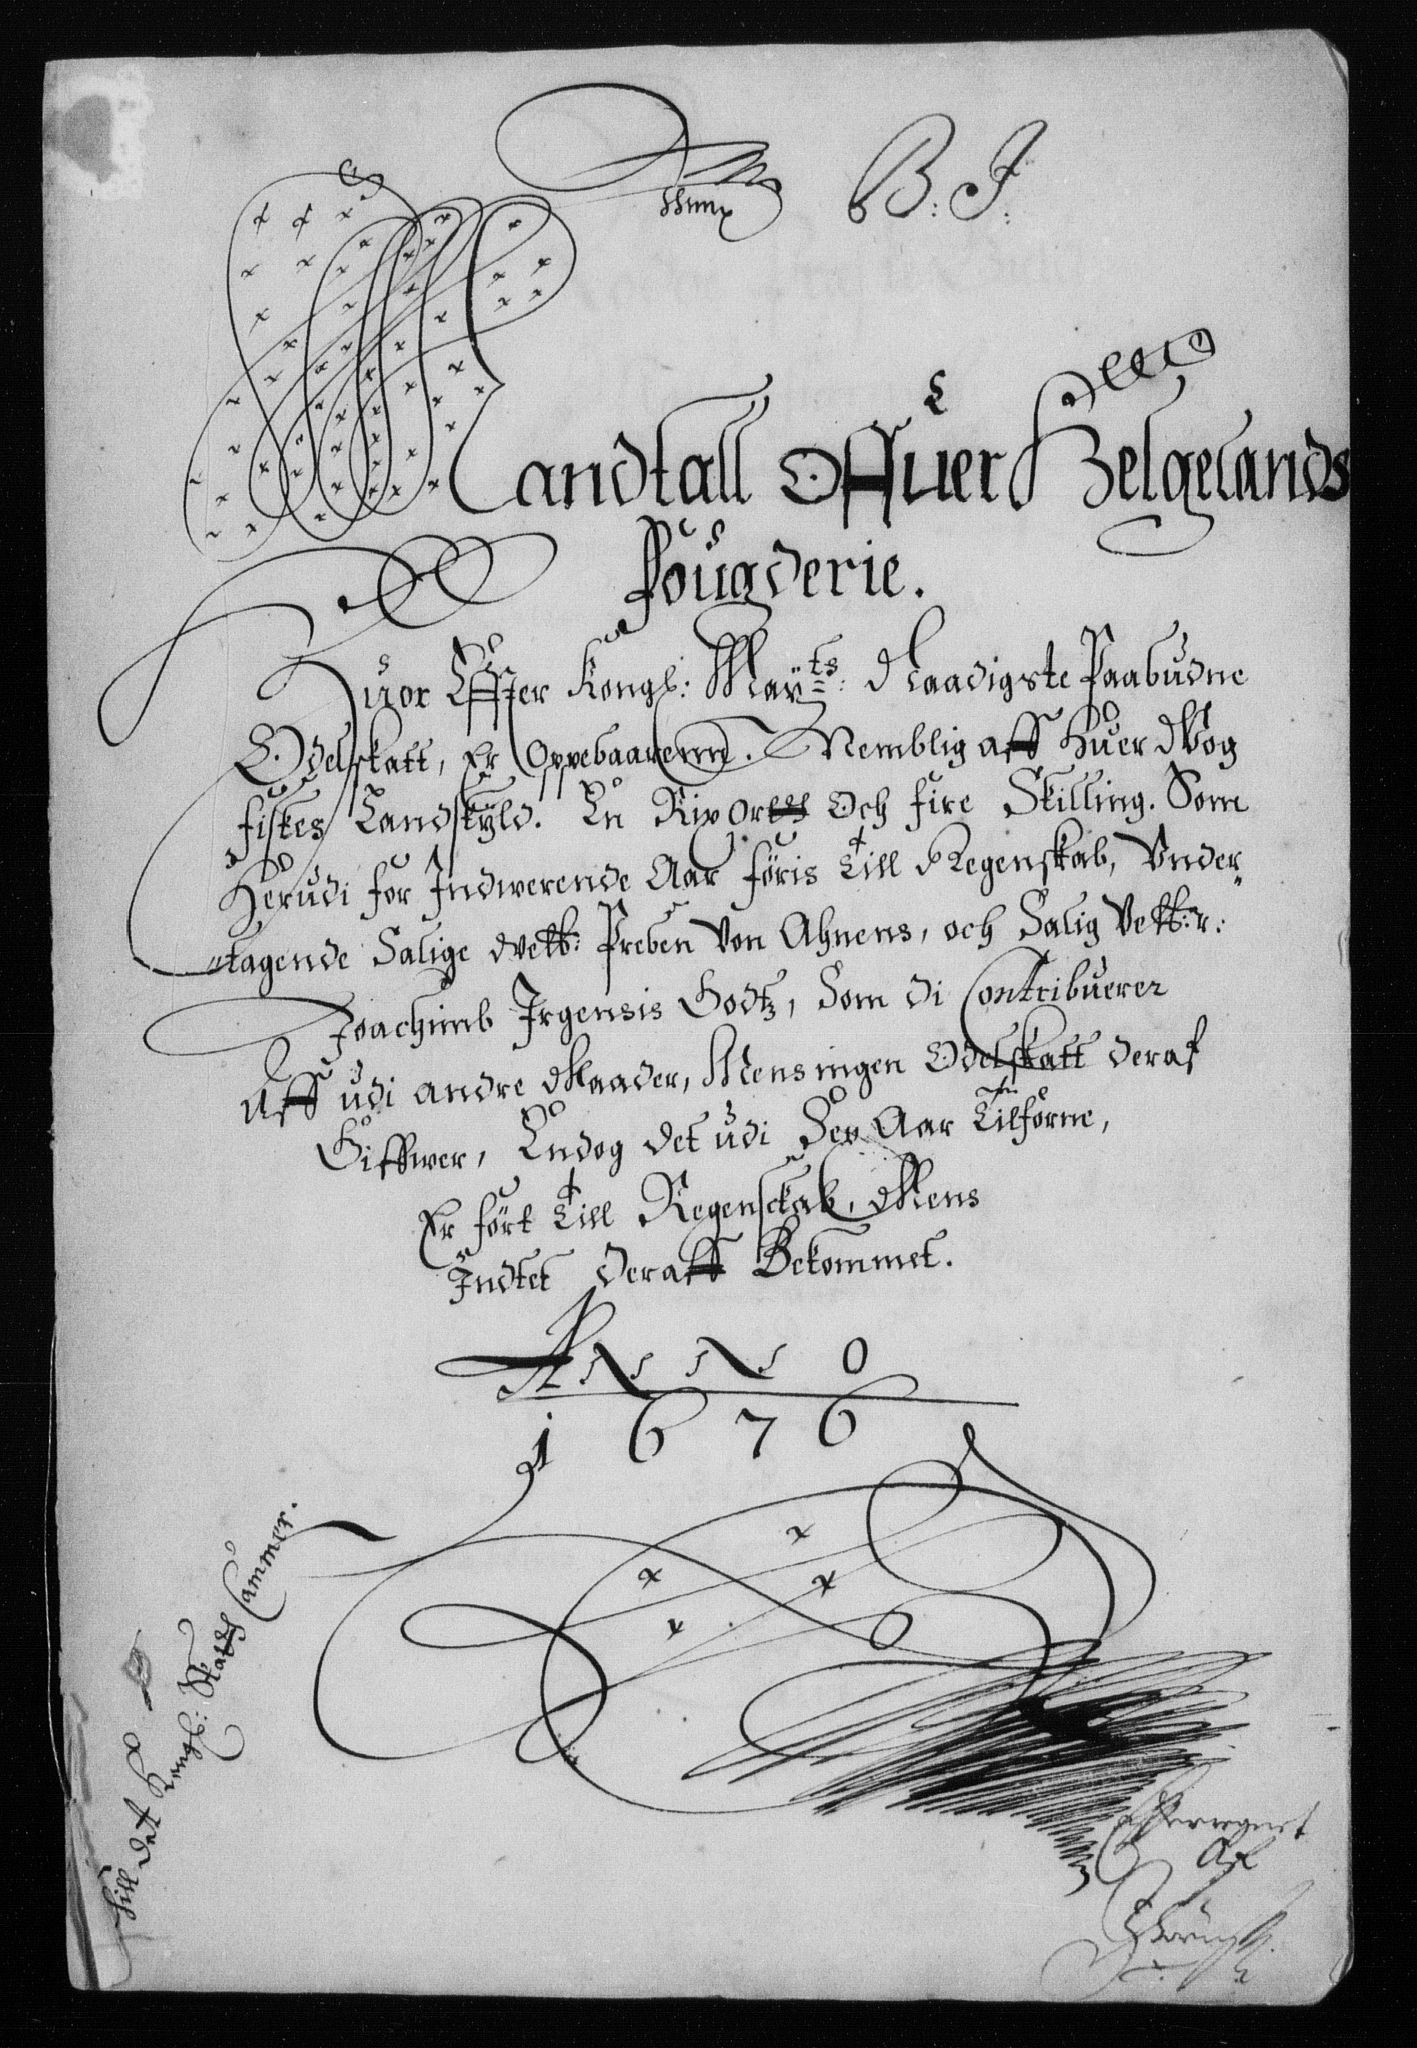 B: J:
Landtall Offuer Helgelands
Fougderie.
Huor Effter Kongl: Mayts: Naadigste Paabudne
Odelskatt, Er Oppebaarenn. Nemblig aff Huer Wog
fiskes Landskÿld. En Rix ort Och fire Skilling. Som
Herudi for Indwerende Aar føris till Regenskab, Vnder-
-tagende Salige Velb: Preben Von Ahnens, och Salig Velb:r:
Joachimb Irgensis Godtz, Som di Contribuerer
Aff udi andre Maader, Mens ingen Odelskatt deraf
Giffwer, Endog det udi Sex Aar tilforne,
Er ført till Regensckab, Mens
Indtet deraff Bekommet.
ANNO
1676
Till det Kongl: Skatz Cammer.
Af